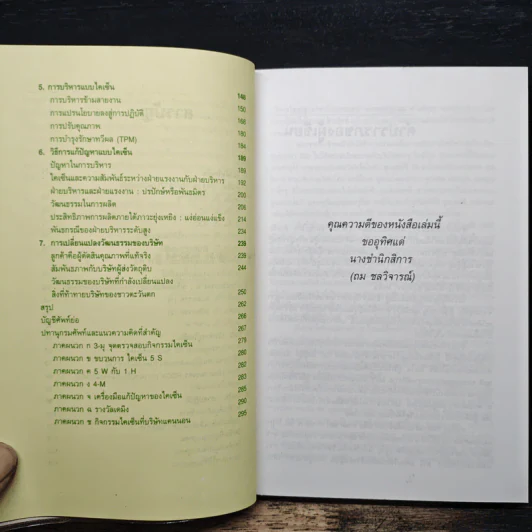 5. การบริหารแบบไคเซ็น 148
การบริหารข้ามสายงาน 150
การแปรนโยบายลงสู่การปฏิบัติ 168
การปรับคุณภาพ 180
การบำรุงรักษาทวีผล (TPM) 184
6. วิธีการแก้ปัญหาแบบไคเซ็น 189
ปัญหาในการบริหาร 190
ไคเซ็นและความสัมพันธ์ระหว่างฝ่ายแรงงานกับฝ่ายบริหาร
ฝ่ายบริหารและฝ่ายแรงงาน : ปรปักษ์หรือพันธมิตร
วัฒนธรรมในการผลิต
ประสิทธิภาพการผลิตภายใต้ภาวะยุ่งเหยิง : แง่อ่อนแง่แข็ง
พันธกรณีของฝ่ายบริหารระดับสูง
7. การเปลี่ยนแปลงวัฒนธรรมของบริษัท 239
ลูกค้าคือผู้ตัดสินคุณภาพที่แท้จริง 239
สัมพันธภาพกับบริษัทผู้ส่งวัตถุดิบ 244
วัฒนธรรมของบริษัทที่กำลังเปลี่ยนแปลง
สิ่งที่ท้าทายบริษัทของชาวตะวันตก 250
สรุป 262
บัญชีศัพท์ย่อ 266
ปทานุกรมศัพท์และแนวความคิดที่สำคัญ 267
ภาคผนวก ก 3-มุ จุดตรวจสอบกิจกรรมไคเซ็น
ภาคผนวก ข ขบวนการ ไคเซ็น 5 S
ภาคผนวก ค 5 W กับ 1 H
ภาคผนวก ง 4-M
ภาคผนวก จ เครื่องมือแก้ปัญหาของไคเซ็น
ภาคผนวก ฉ รางวัลเดมิง 290
ภาคผนวก ช กิจกรรมไคเซ็นที่บริษัทแคนนอน 295
คุณความดีของหนังสือเล่มนี้
ขออุทิศแด่
นางชำนิกสิการ
(ถม ชลวิจารณ์)